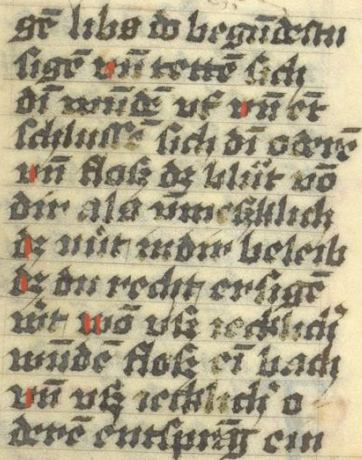 gē libs do begūdestu
sigē vn̄ tettē sich
di wūdē vf vn̄ ēt
schlussē sich di oderē
vn̄ floß dz blůt vō
dir als vn̄messklich
dz nüt in dir beleib
dz du recht ersigē
wīt wō vß ieckklich
wūdē floß ei bach
vn̄ vß iecklich o
derē entsprāg ein